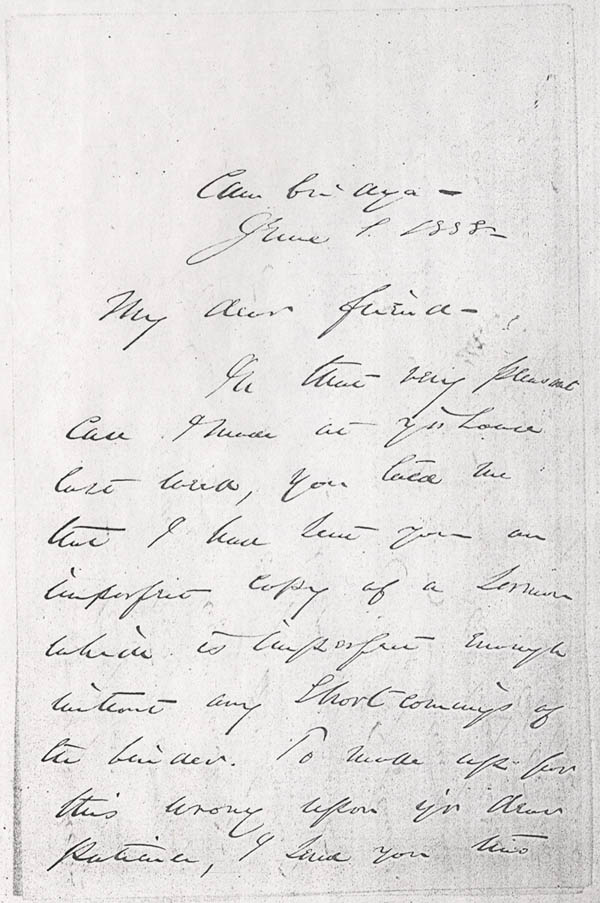 Cambridge -
June 1. 1888 -
My dear friend -
In that very pleasant
Call I made at yr house
last week, you told me
that I had sent you an
imperfect copy of a Sermon
which is imperfect enough
without any Shortcomings of
the binder. To make up for
this wrong upon yr dear
patience, I send you two